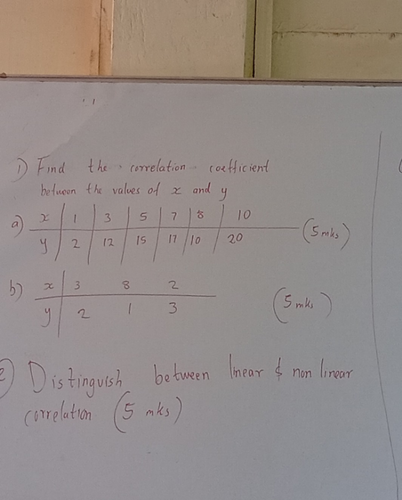 1) Find the correlation coefficient
between the values of x and y
a) x | 1 | 3 | 5 | 7 | 8 | 10
y | 2 | 12 | 15 | 17 | 10 | 20 (5mks)
b) x | 3 8 2
y | 2 1 3 (5mks)
2) Distinguish between linear & non linear
correlation (5 mks)